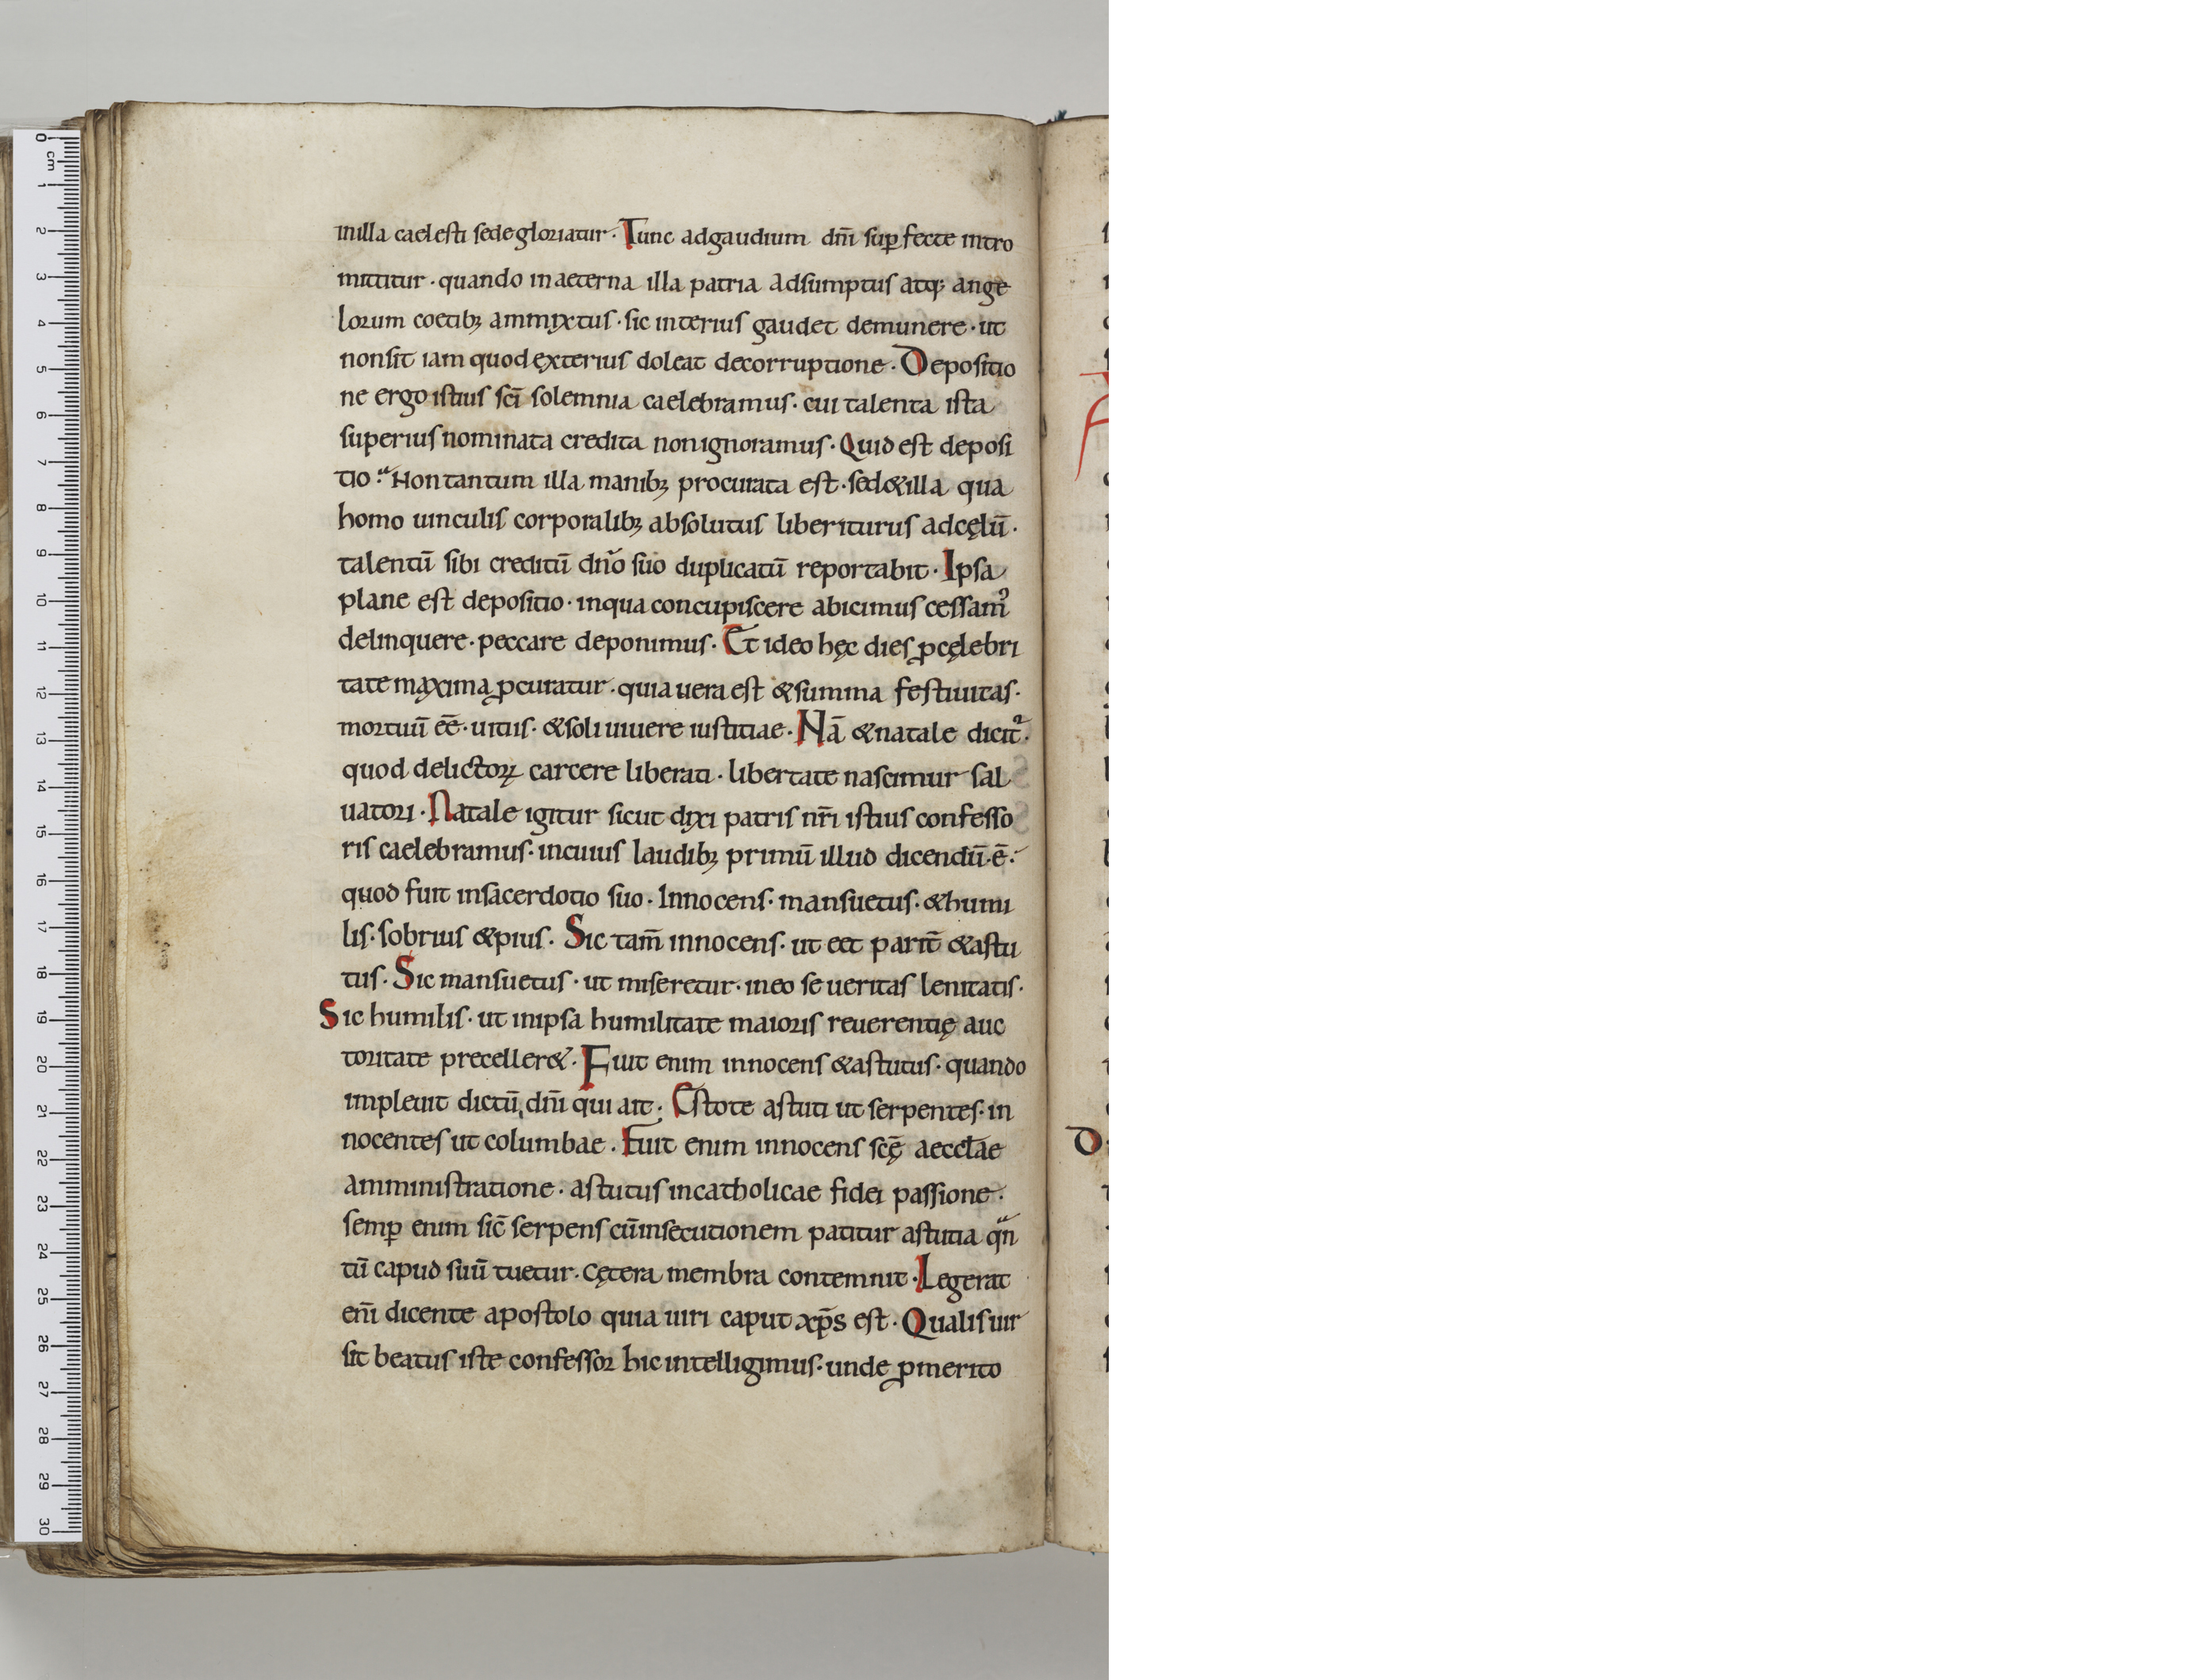 inilla caelesti sede gloriatur· Tunc adgaudium dn̄i sup̄ fecte intro
mittitur· quando inaeterna illa patria adsumptus atq; ange
lorum coetib; ammixtus· sic interius gaudet demunere· ut
nonsit iam quod exterius doleat decorruptione· Depositio
ne ergo istius sc̄i solemnia caelebramus· cui talenta ista
superius nominata credita nonignoramus· Quid est deposi
tio? Non tantum illa manib; procurata est· sed&illa qua
homo uinculis corporalib; absolutus liber iturus adcęlū·
talentū sibi creditū dn̄o suo duplicatū reportabit· Ipsa
plane est depositio· inqua concupiscere abicimus cessamꝰ
delinquere· peccare deponimus· Et ideo hęc dies ꝓcęlebri
tate maxima ꝓcuratur· quia uera est &summa festiuitas·
mortuū eē· uitiis· &soli uiuere iustitiae· Nā &natale dicit̄·
quod delictoꝝ carcere liberati· libertate nascimur sal
uatori· Natale igitur sicut dixi patris nr̄i istius confesso
ris caelebramus· incuius laudib; primū illud dicendū·ē·
quod fuit insacerdotio suo· Innocens· mansuetus· &humi
lis· sobrius &pius· Sic tam̄ innocens· ut eēt parit̄ &astu
tus· Sic mansuetus· ut miseretur· ineo seueritas lenitatis·
Sic humilis· ut inipsa humilitate maioris reuerentię auc
toritate preceller&· Fuit enim innocens &astutus· quando
impleuit dictū dn̄i qui ait· Estote astuti ut serpentes· in
nocentes ut columbae· Fuit enim innocens scę̄ aeccl̄ae
amministratione· astutus incatholicae fidei passione·
semꝑ enim sic̄ serpens cūinsecutionem patitur astutia qn̄
tū capud suū tuetur· cętera membra contemnit· Legerat
en̄i dicente apostolo quia uiri caput xp̄s est· Qualis uir
sit beatus iste confessor hic intelligimus· unde ꝓmerito
0 cm
1
2
3
4
5
6
7
8
9
10
11
12
13
14
15
16
17
18
19
20
21
22
23
24
25
26
27
28
29
30